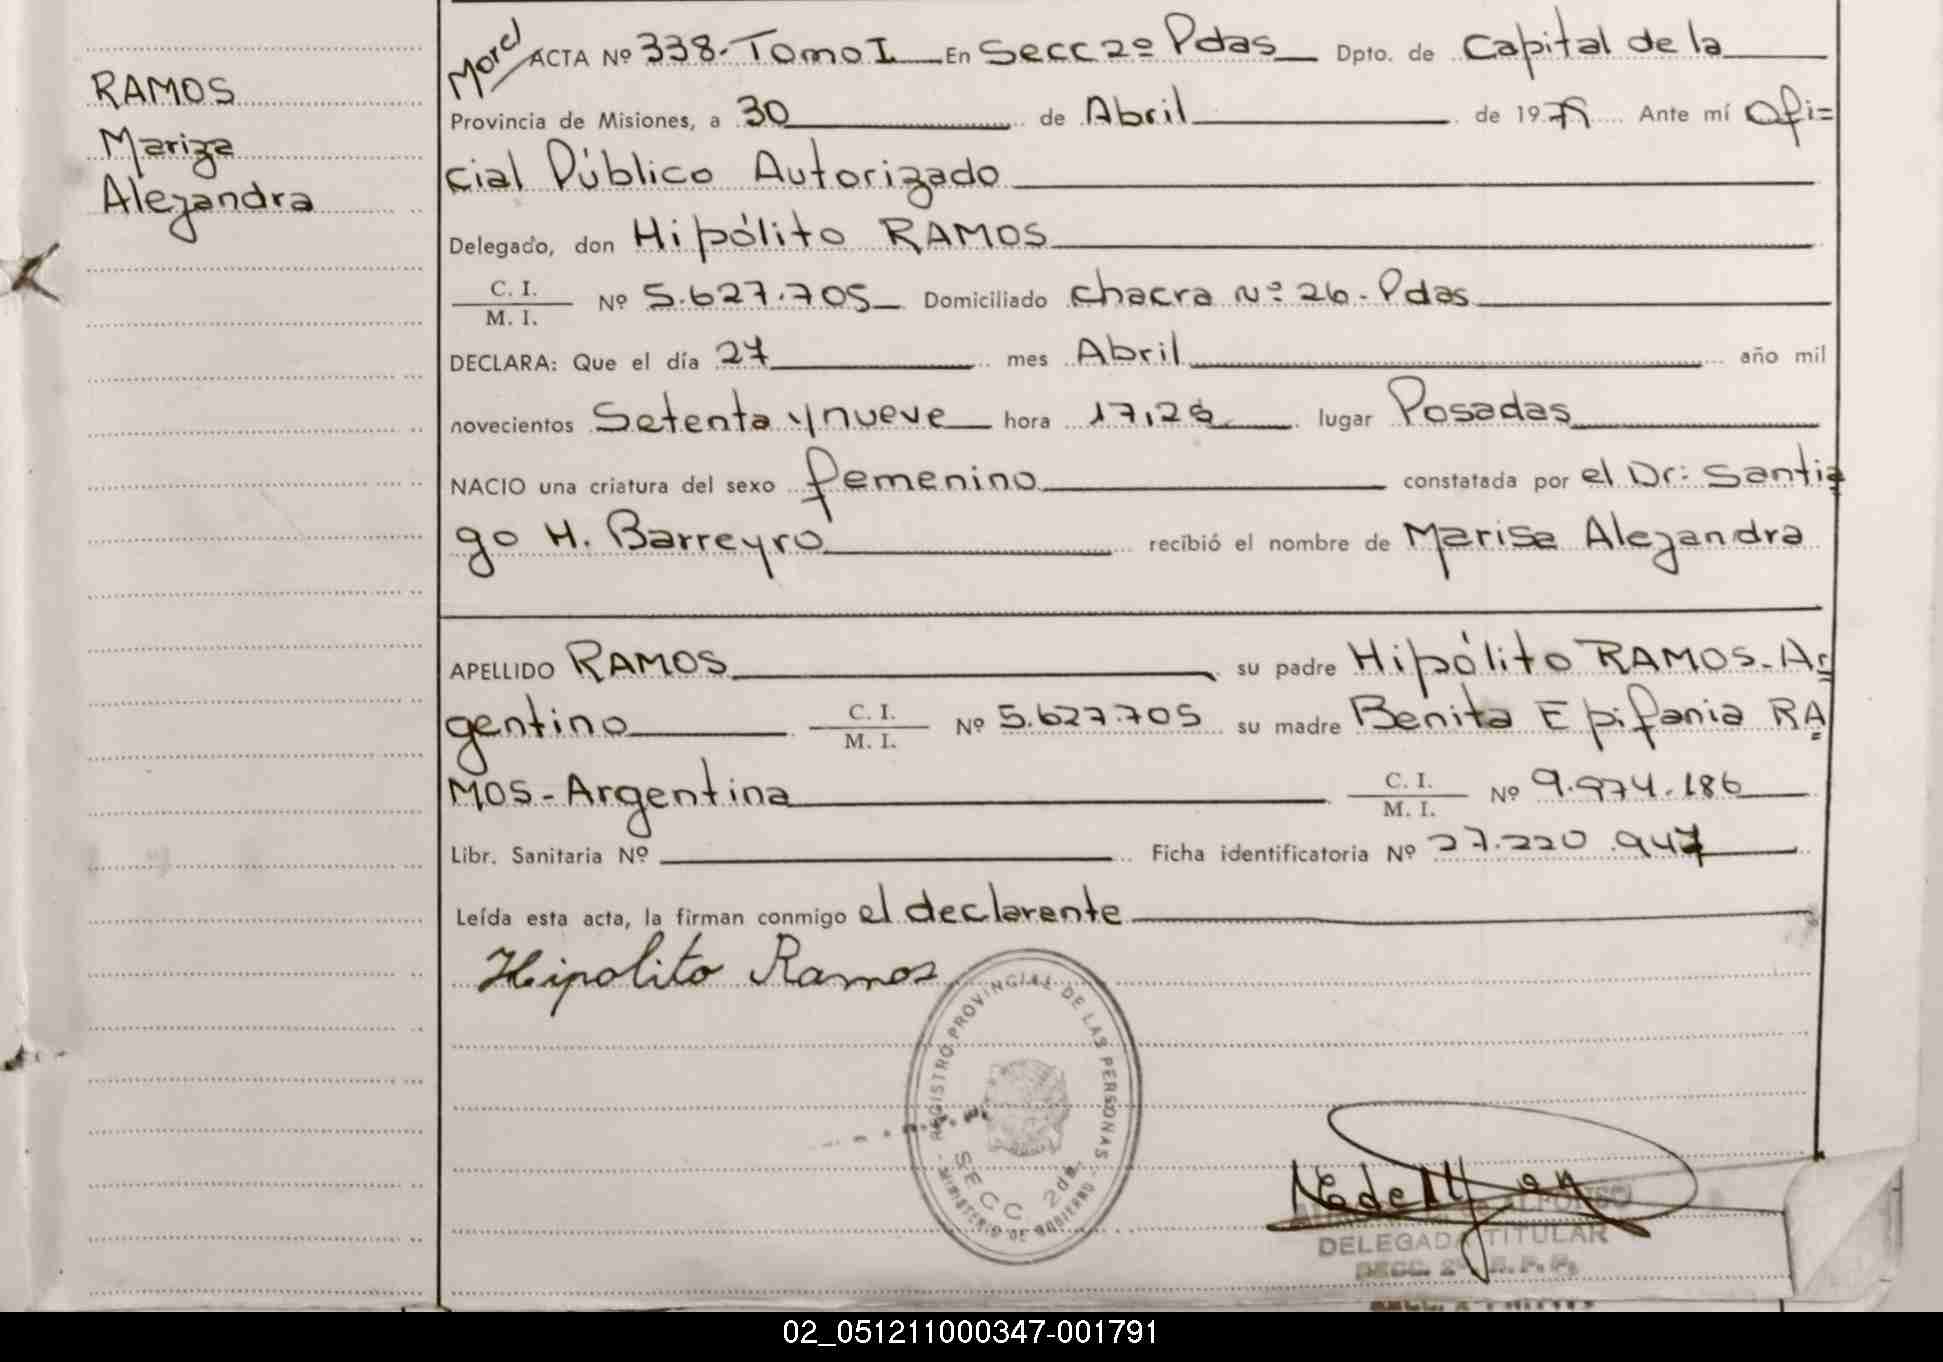 RAMOS
Mariza
Alejandra
Morel
ACTA Nº 338-Tomo I En Secc 2º Pdas Dpto. de Capital de la
Provincia de Misiones, a 30 de Abril de 1979 Ante mí Ofi=
cial Público Autorizado
Delegado, don Hipólito RAMOS
C. I.
M. I.
Nº 5.627.705 Domiciliado chacra Nº 26 - Pdas
DECLARA: Que el día 27 mes Abril año mil
novecientos Setenta y nueve hora 17,25 lugar Posadas
NACIO una criatura del sexo femenino constatada por el Dr: Santia
go H. Barreyro recibió el nombre de Marisa Alejandra
APELLIDO RAMOS su padre Hipólito RAMOS-Ar
gentino C. I.
M. I.
Nº 5.627.705 su madre Benita Epifania RA
MOS-Argentina C. I.
M. I.
Nº 9.974.186
Libr. Sanitaria Nº Ficha identificatoria Nº 27.220.947
Leída esta acta, la firman conmigo el declarente
Hipolito Ramos
REGISTRO PROVINCIAL DE LAS PERSONAS
SECC 2da.
MINISTERIO DE GOBIERNO
ALFONSO
DELEGADA TITULAR
SECC. 2º R. P. P.
02_051211000347-001791